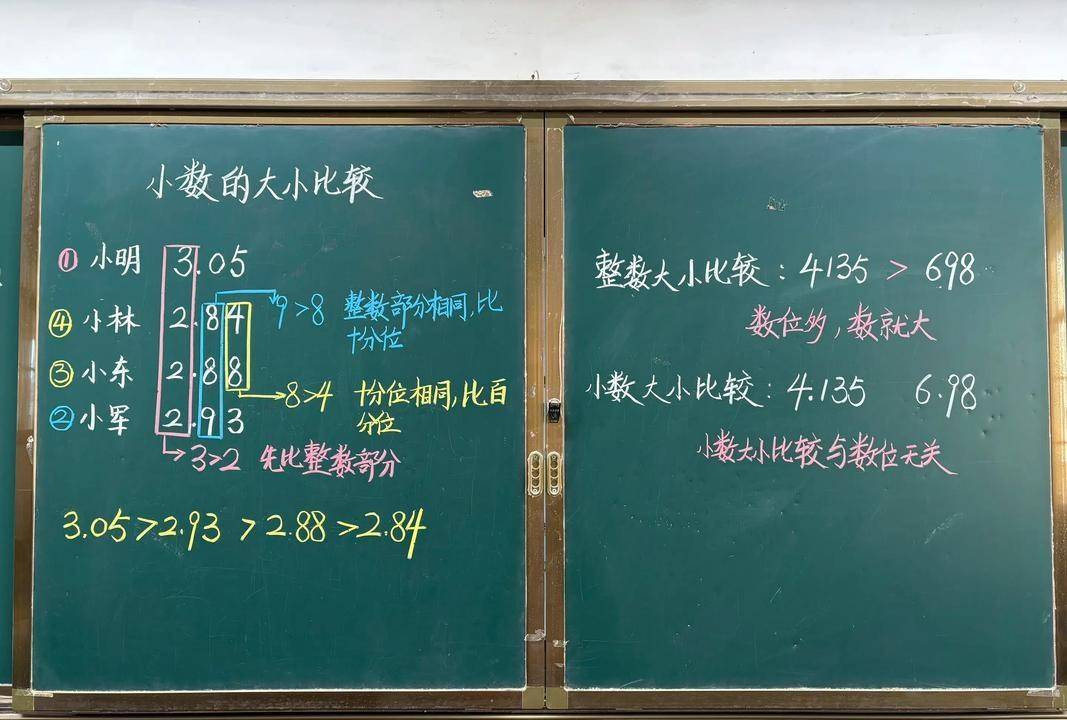 小数的大小比较
① 小明 3.05
④ 小林 2.84
9>8 整数部分相同,比
十分位
③ 小东 2.88
8>4 十分位相同,比百
分位
② 小军 2.93
3>2 先比整数部分
3.05>2.93>2.88>2.84
整数大小比较:4135 > 698
数位多,数就大
小数大小比较:4.135 6.98
小数大小比较与数位无关